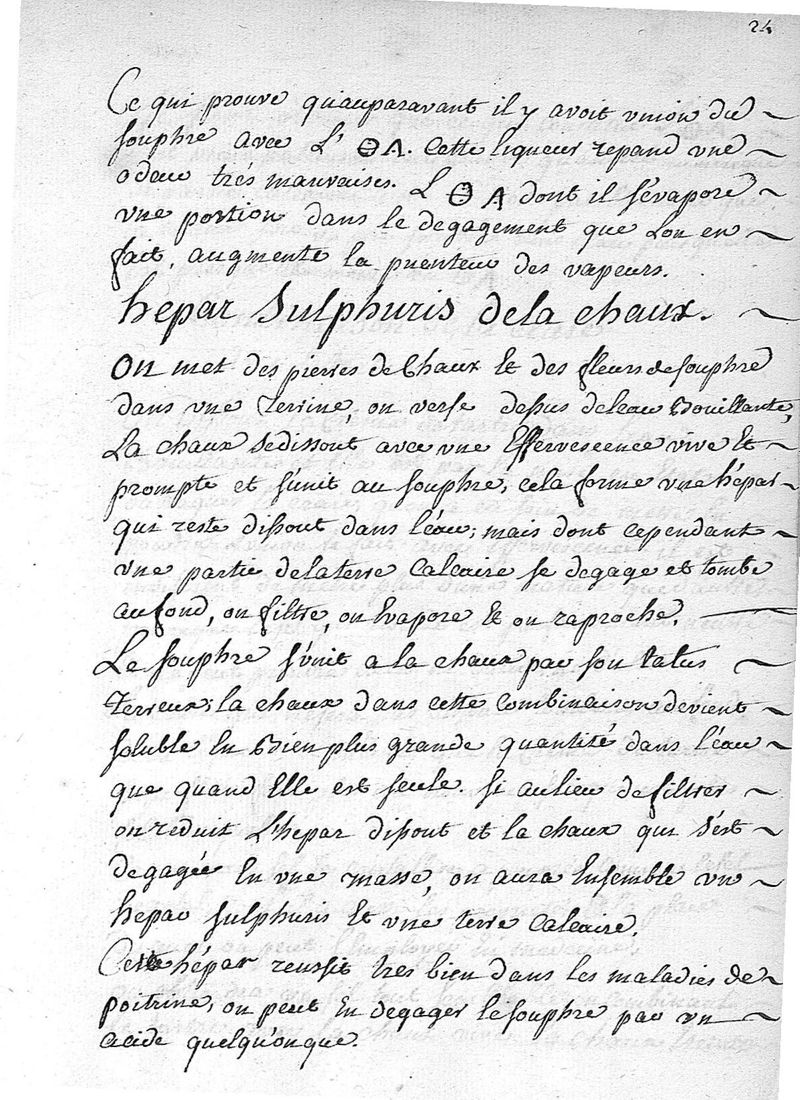 24
Ce qui prouve quauparavant il y avoit union du
souphre avec L' ⊖Λ. Cette liqueur repand une
odeur tres mauvaises. L ⊖Λ dont il s'évapore
une portion dans le degagement que Lon en
fait, augmente la puenteur des vapeurs.
hepar Sulphuris de la chaux.
On met des pierres de Chaux Et des fleurs de souphre
dans une Terrine, on verse dessus de leau Bouillante,
La chaux se dissout avec une Effervescence vive Et
prompte et s'unit au souphre, cela forme une hépar
qui reste dissout dans l'éau; mais dont cependant
une partie de la terre Calcaire se degage et tombe
au fond, on filtre, on Evapore Et on raproche.
Le souphre s'unit a la chaux par son latus
terreux; la chaux dans cette combinaison devient
soluble En Bien plus grande quantité dans l'éau
que quand Elle est seule. Si au lieu de filtrer
on reduit L'hepar dissout et la chaux qui s'est
degagée En une masse, on aura Ensemble un
hepar sulphuris Et une terre Calcaire.
Cette hépar reussit tres bien dans les maladies de
poitrine, on peut En degager le souphre par un
acide quelqu'onque.